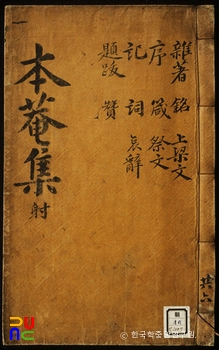 雜著 銘 上梁文
序 箴 祭文
記 詞 哀辭
題跋 贊
本菴集
射
共六
© 한국학중앙연구원